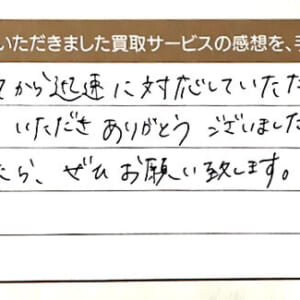 いただきました買取サービスの感想を、
から迅速に対応していただ
いただき ありがとう ございました
たら、ぜひ お願い致します。